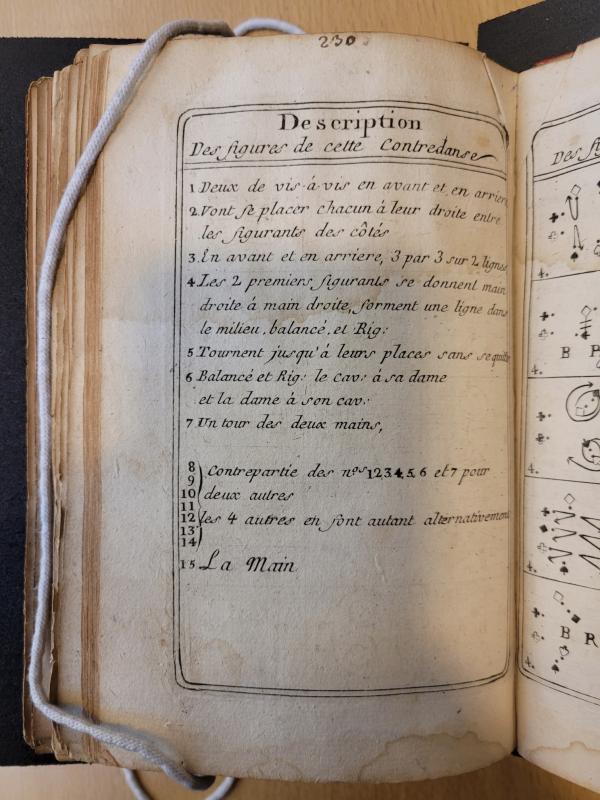 230
Description
Des figures de cette Contredanse
1 Deux de vis-á-vis en avant et en arriere
2. Vont se placer chacun á leur droite entre
les figurants des côtés
3. En avant et en arriere, 3 par 3 sur 2 lignes
4 Les 2 premiers figurants se donnent main
droite á main droite, forment une ligne dans
le milieu, balancé, et Rig:
5 Tournent jusqu'á leurs places sans se quitter
6 Balancé et Rig: le cav: á sa dame
et la dame á son cav:
7 Un tour des deux mains,
8
9 Contrepartie des nos 1 2 3. 4. 5. 6 et 7 pour
10 deux autres
11
12 les 4 autres en font autant alternativement
13
14
15 La Main
Des fi
4.
B R
4.
4.
4.
B R
4.